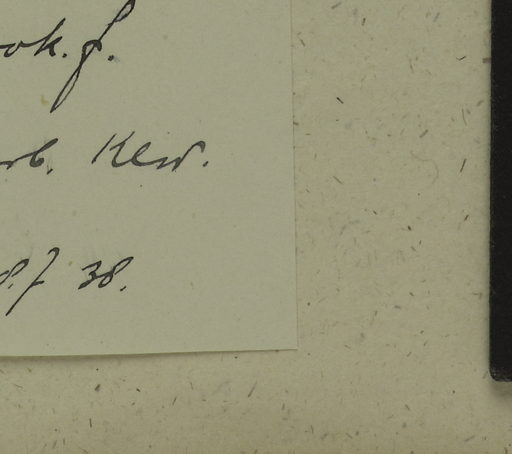 ok. f.
rb. Kew.
8.7 38.